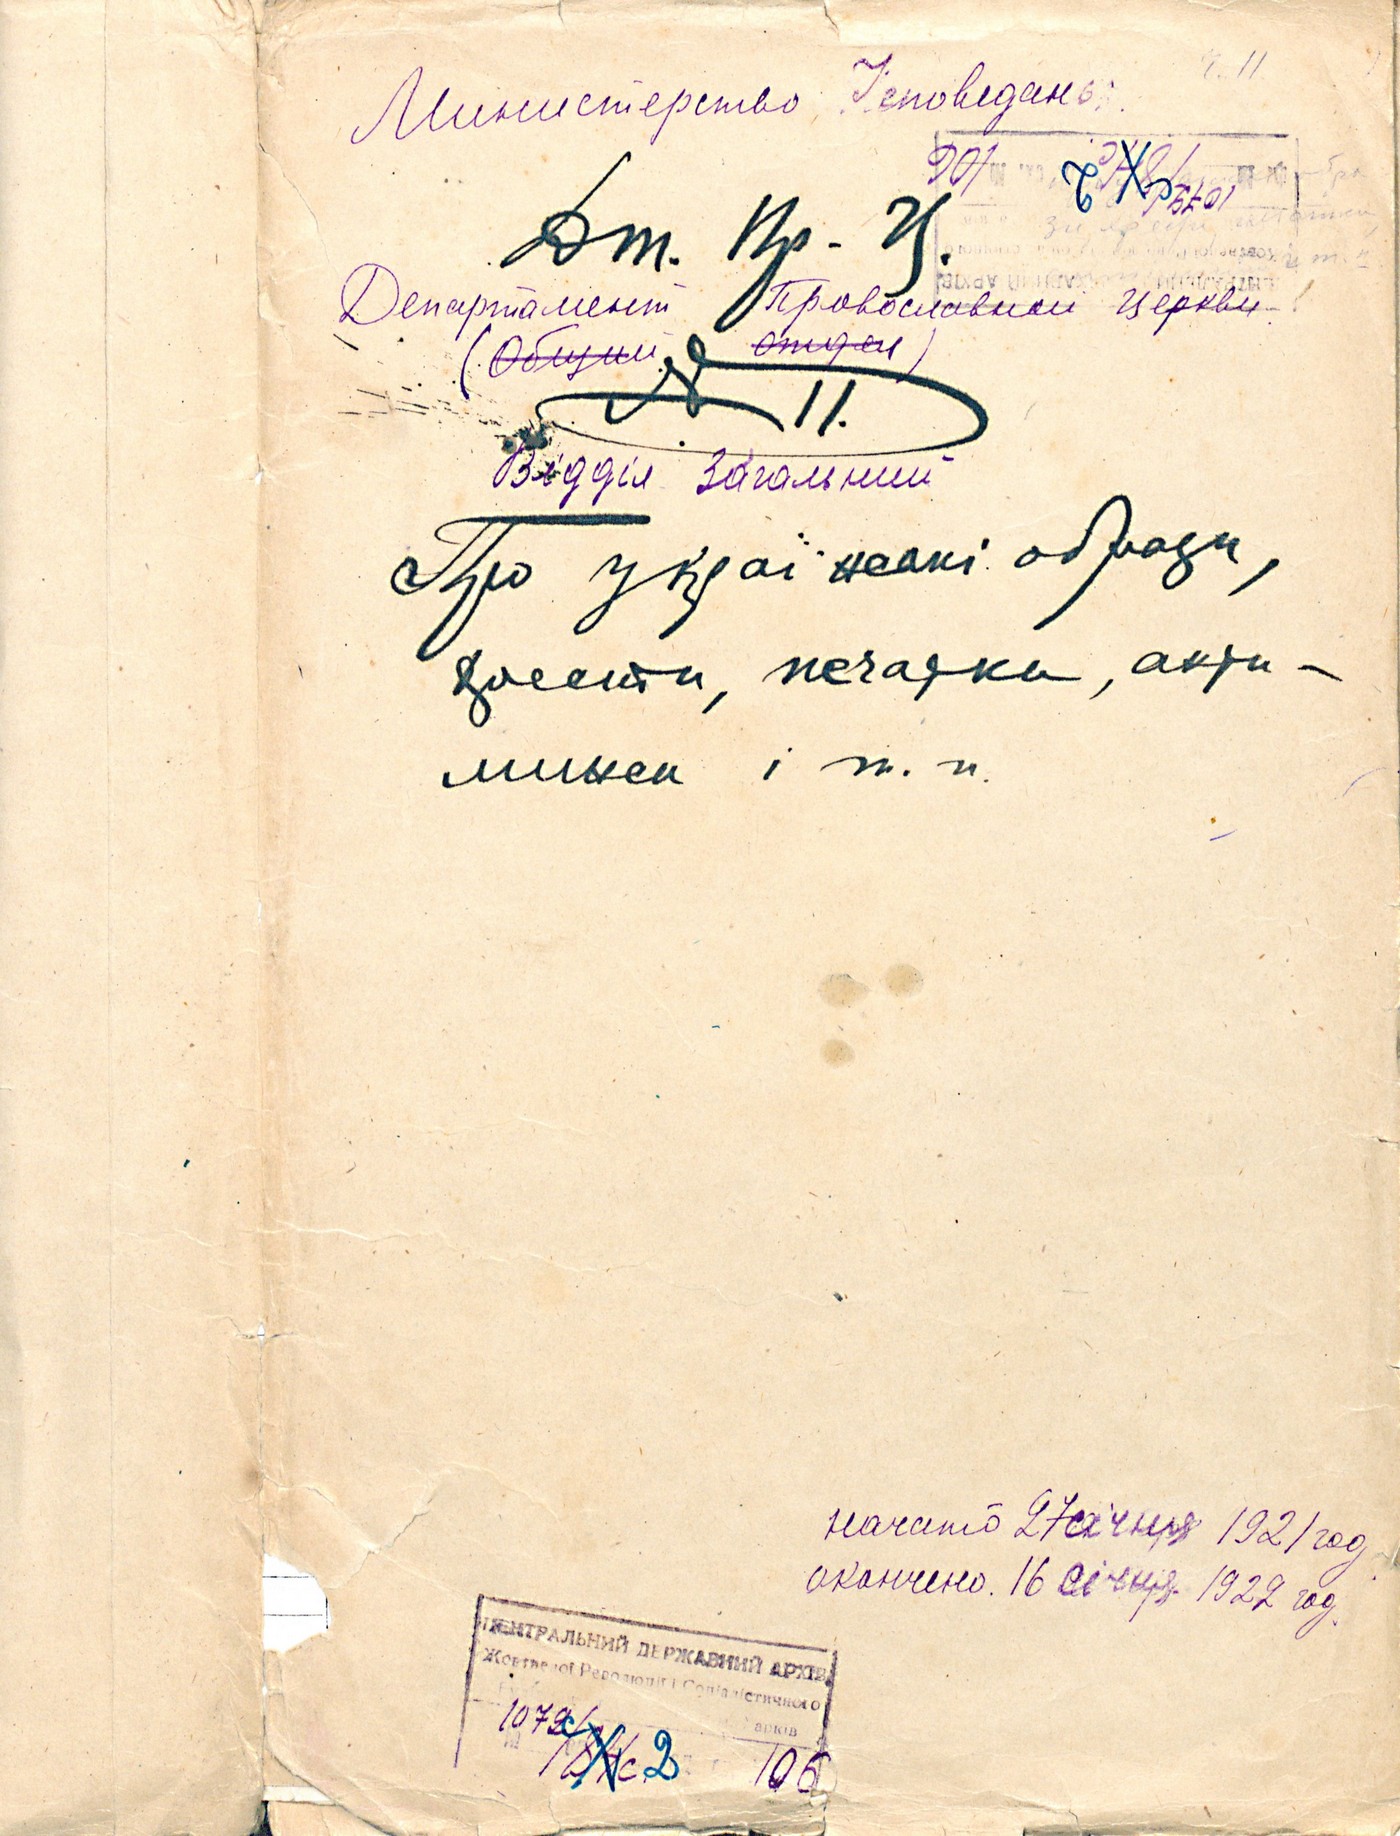 ч. 11
Министерство Исповеданья.
Дт. Пр. - Ц.
Департамент Провославной Церкви
(Общий отдел)
№ 11.
Відділ Загальний
Про українські образи,
хрести, печатки, анти-
минси і т. п.
начато 27 січня 1921 год
окончено. 16 січня 1922 год.
ЦЕНТРАЛЬНИЙ ДЕРЖАВНИЙ АРХІВ
Жовтневої Революції і Соціалістичного
Харків
1072
2 106